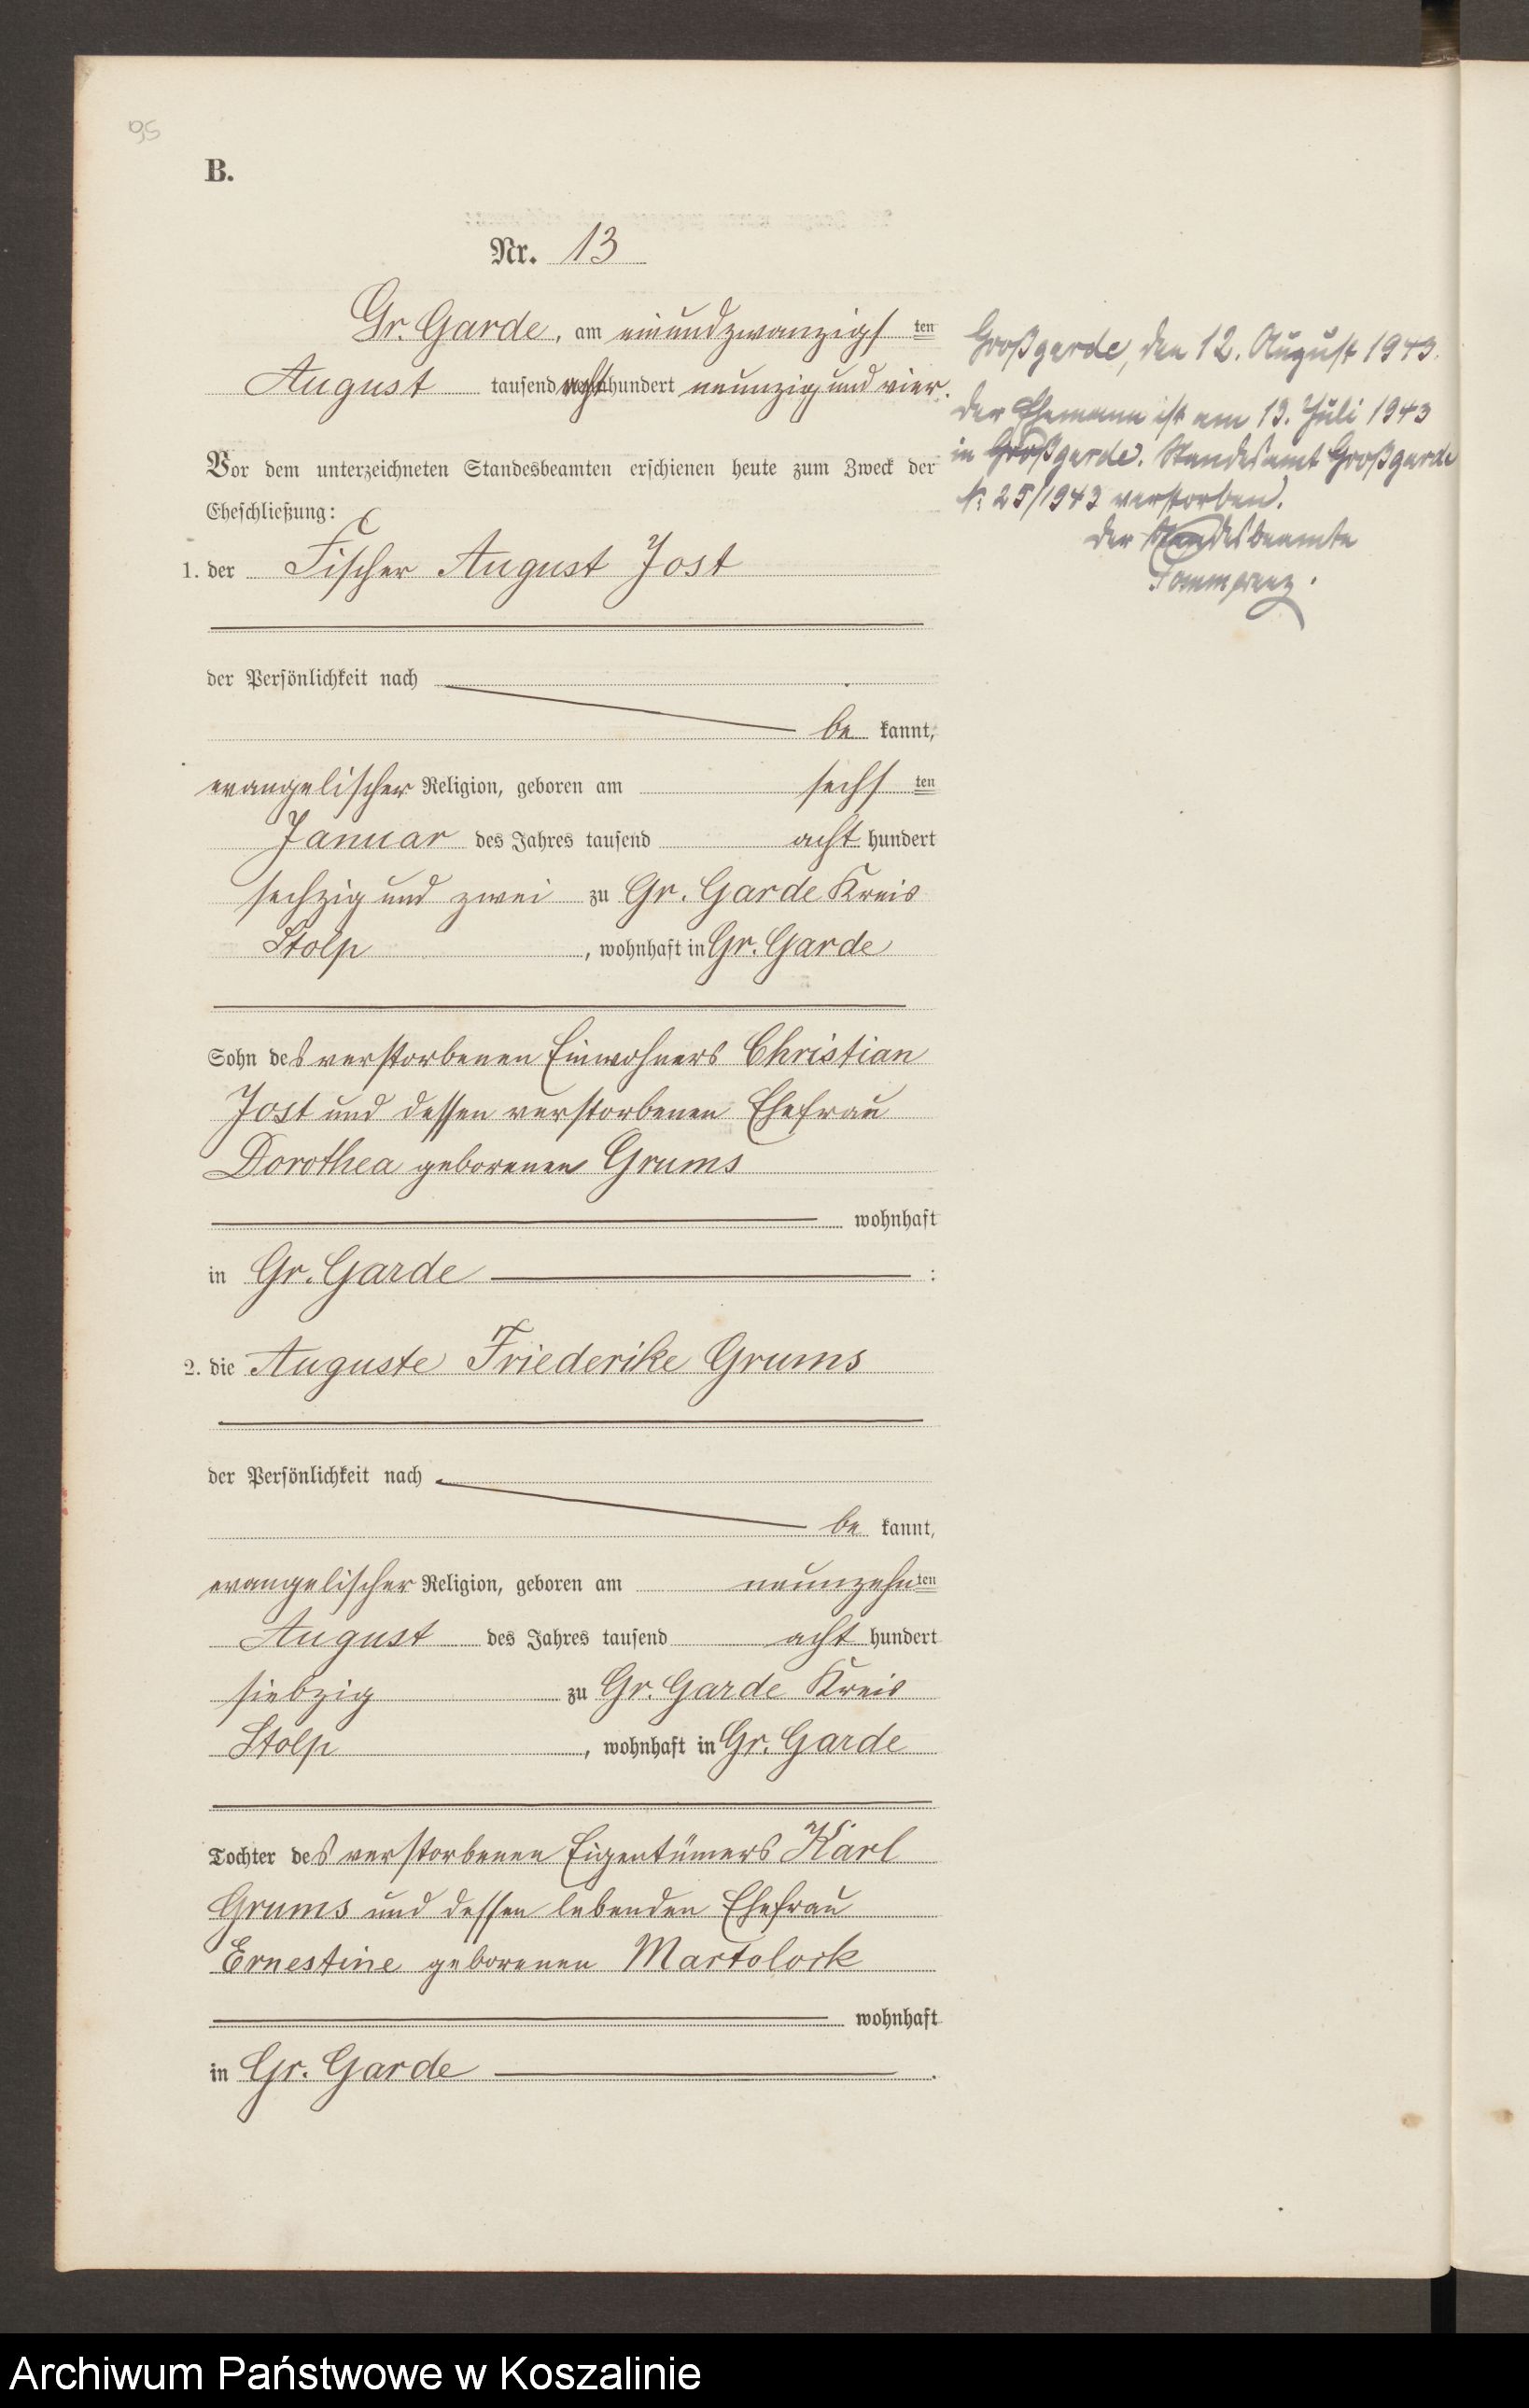 95
B.
Nr. 13
Gr. Garde, am einundzwanzigsten
August tausend achthundert neunzig und vier.
Vor dem unterzeichneten Standesbeamten erschienen heute zum Zweck der
Eheschließung:
1. der Fischer August Jost
der Persönlichkeit nach
be kannt,
evangelischer Religion, geboren am sechsten
Januar des Jahres tausend acht hundert
sechzig und zwei zu Gr. Garde Kreis
Stolp, wohnhaft in Gr. Garde
Sohn des verstorbenen Einwohners Christian
Jost und dessen verstorbenen Ehefrau
Dorothea geborenen Grums
wohnhaft
in Gr. Garde :
2. die Auguste Friederike Grums
der Persönlichkeit nach
be kannt,
evangelischer Religion, geboren am neunzehnten
August des Jahres tausend acht hundert
siebzig zu Gr. Garde Kreis
Stolp, wohnhaft in Gr. Garde
Tochter des verstorbenen Eigentümers Karl
Grums und dessen lebenden Ehefrau
Ernestine geborenen Martolock
wohnhaft
in Gr. Garde .
Großgarde, den 12. August 1943.
Der Ehemann ist am 13. Juli 1943
in Großgarde. Standesamt Großgarde
Nr 25/1943 verstorben.
Der Standesbeamte
Archiwum Państwowe w Koszalinie